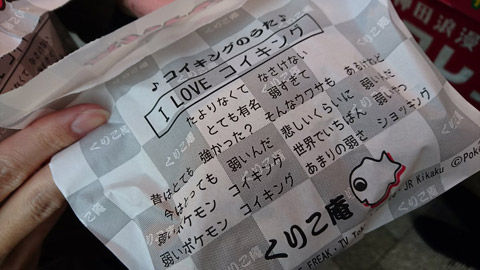 ♪コイキングのうた♪
I LOVE コイキング
たよりなくて なさけない
とても有名 弱すぎて
昔はとても 強かった? そんなウワサも あるけれど
今はとっても 弱いんだ 悲しいくらいに 弱いんだ
弱いポケモン コイキング 世界でいちばん 弱いヤツ
弱いポケモン コイキング あまりの弱さ ショッキング
くりこ庵
JR Kikaku
©Pok
FREAK・TV Tok
くりこ庵
くりこ庵
くりこ庵
田浪漫